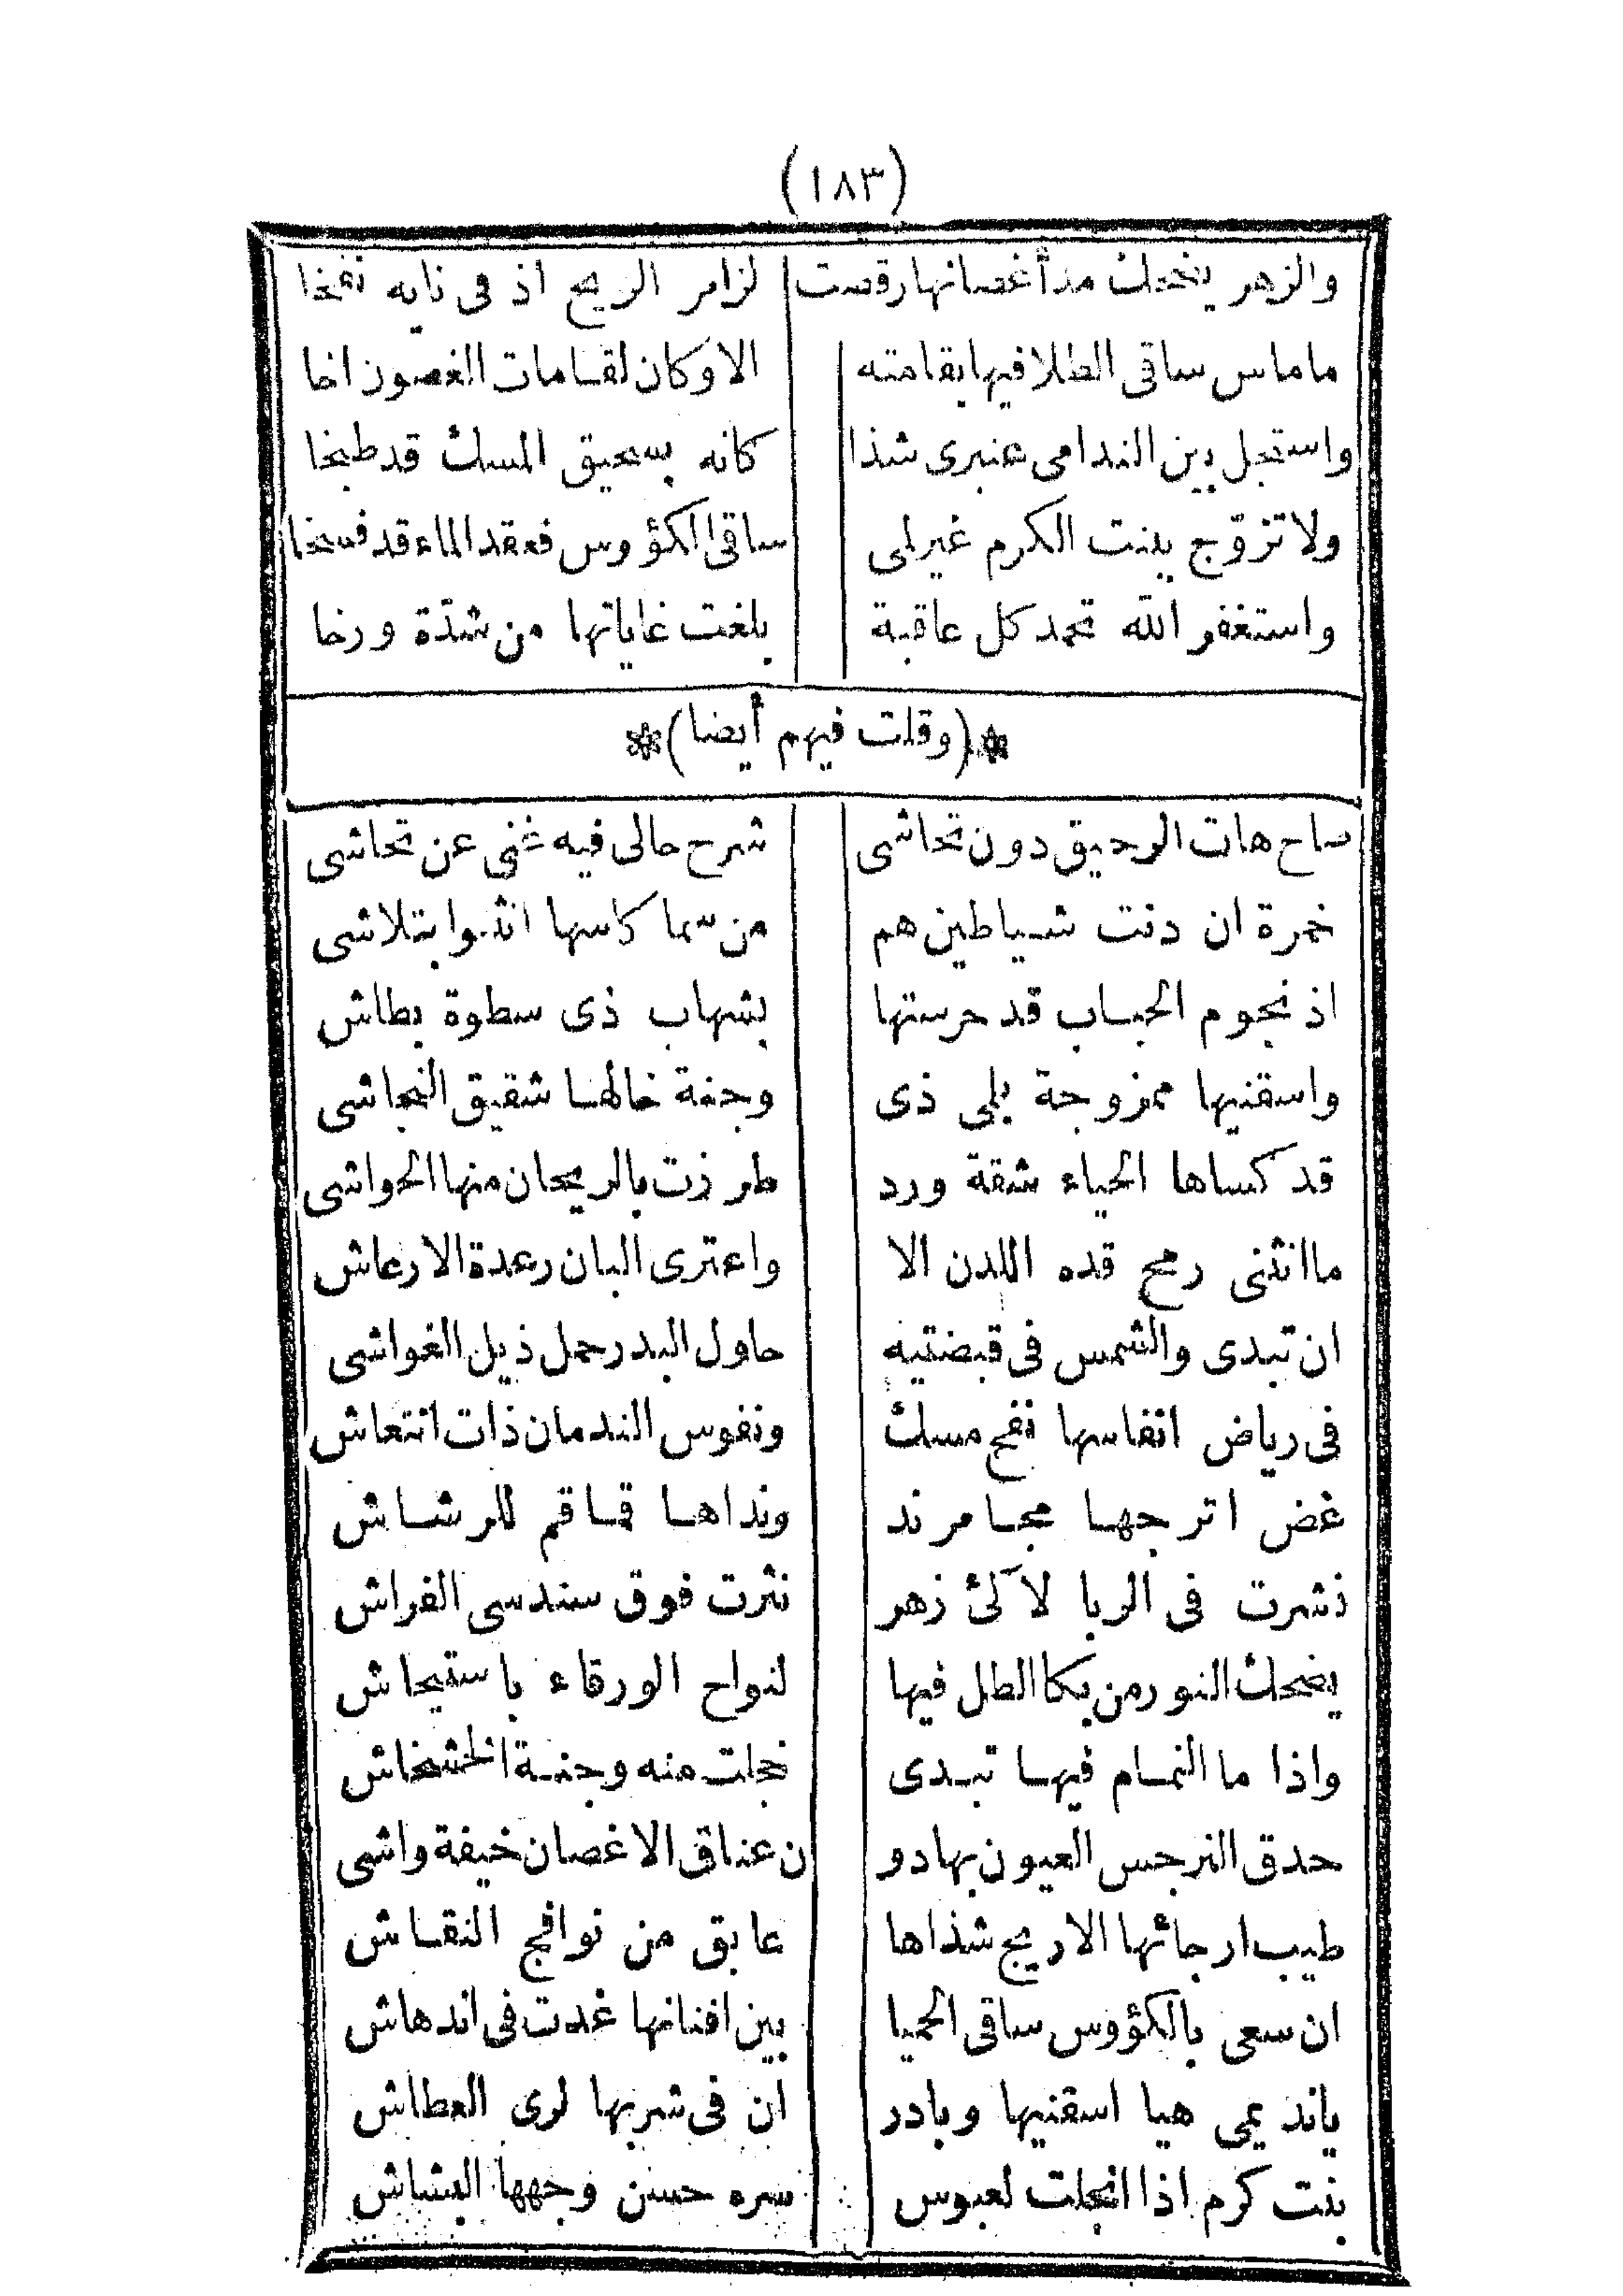 (١٨٣)
والزهر يضحك مذ أغصانها رقصت لزامر الريح اذ فى نايه نفخا
ما ماس ساقى الطلا فيها بقامته الا وكان لقامات الغصون اخا
واستجل بين الندامى عنبرى شذا كانه بسحيق المسك قد طبخا
ولا تزوّج ببنت الكرم غير لمى ساقى الكؤوس فعقد الماء قد فسخا
واستغفر الله تحمد كل عاقبة بلغت غاياتها من شدّة ورخا
*(وقلت فيهم أيضا)*
صاح هات الرحيق دون تحاشى شرح حالى فيه غنى عن تحاشى
خمرة ان دنت شياطين هم من سما كاسها انثنوا بتلاشى
اذ نجوم الحباب قد حرستها بشهاب ذى سطوة بطاش
واسقنيها ممزوجة بلمى ذى وجنة خالها شقيق النجاشى
قد كساها الحياء شقة ورد طرزت بالريحان منها الحواشى
ما انثنى رمح قده اللدن الا واعترى البان رعدة الارعاش
ان تبدى والشمس فى قبضتيه حاول البدر حمل ذيل الغواشى
فى رياض انفاسها نفح مسك ونفوس الندمان ذات انتعاش
غض اترجها مجامر ند ونداها قماقم للرشاش
نشرت فى الربا لآلئ زهر نثرت فوق سندسى الفراش
يضحك النور من بكا الطل فيها لنواح الورقاء باستيحاش
واذا ما النمام فيها تبدى خجلت منه وجنة الخشخاش
حدق النرجس العيون بها دو ن عناق الاغصان خيفة واشى
طيب ارجائها الاريج شذاها عابق من نوافج النقاش
ان سعى بالكؤوس ساقى الحميا بين افنانها غدت فى اندهاش
يانديمى هيا اسقنيها وبادر ان فى شربها لرى العطاش
بنت كرم اذا انجلت لعبوس سره حسن وجهها البشاش